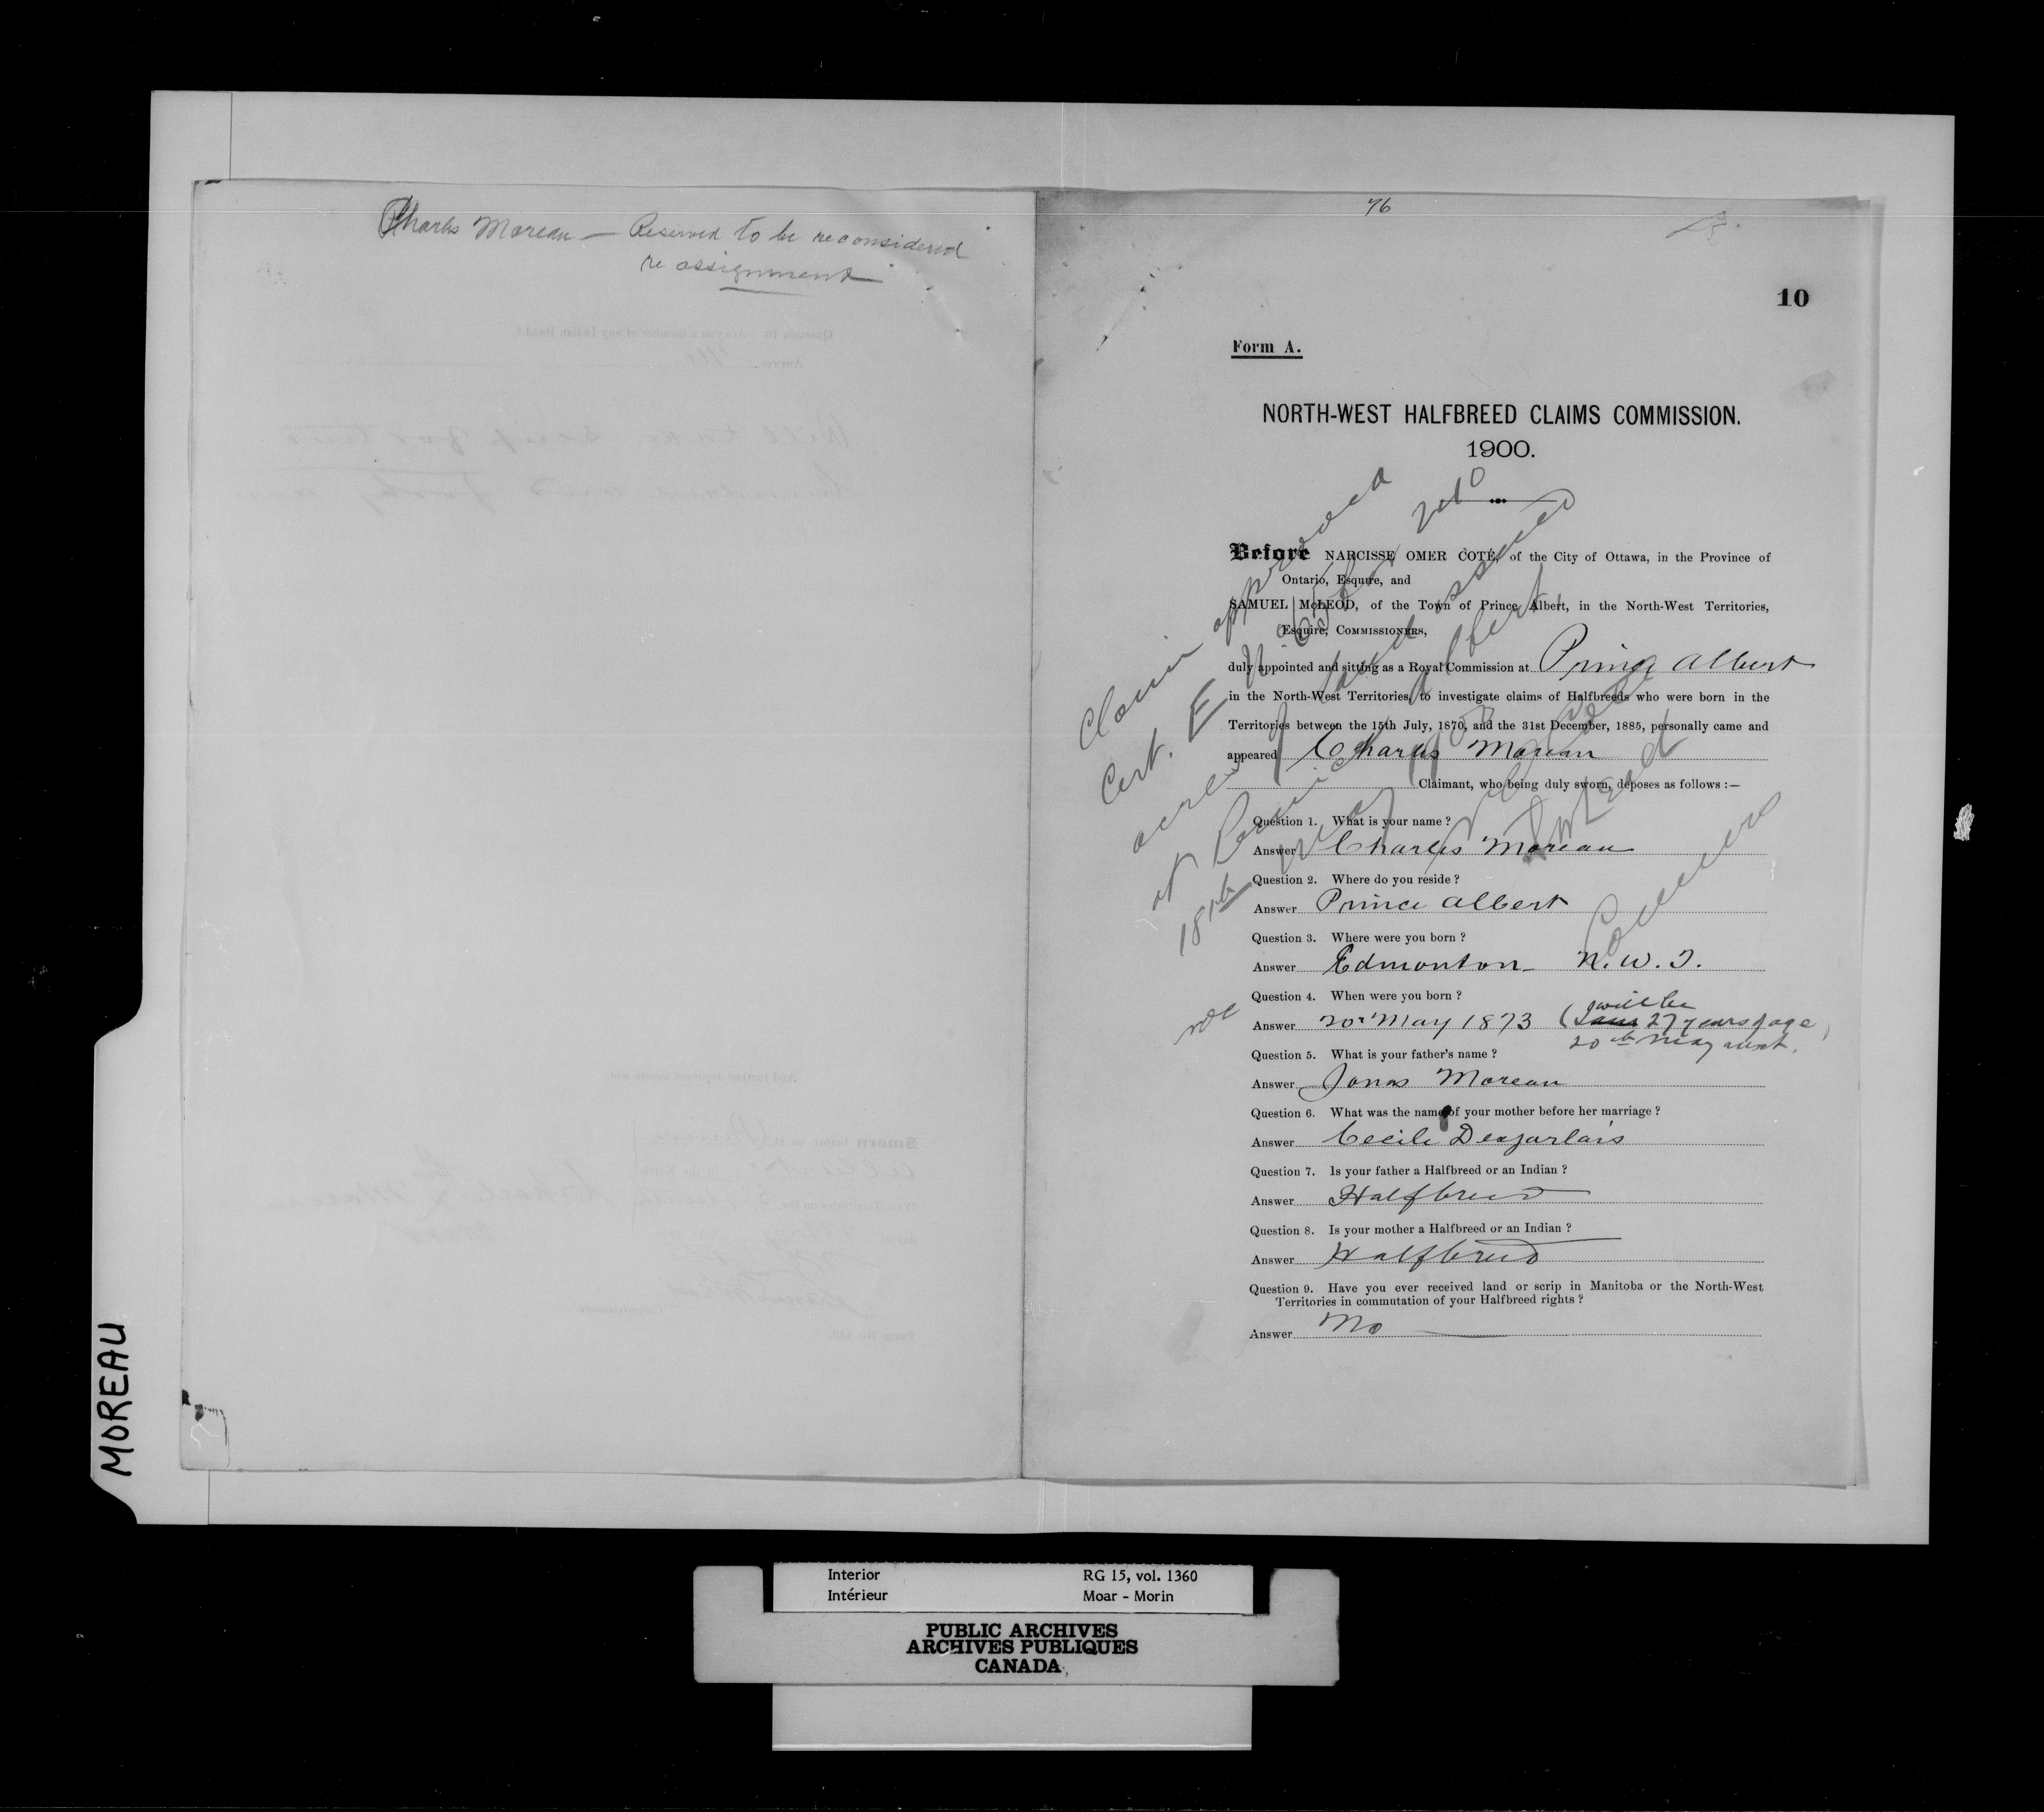 Charles Moreau — Reserved to be reconsidered
re assignment
76
10
Form A.
NORTH-WEST HALFBREED CLAIMS COMMISSION.
1900.
Before NARCISSE OMER COTÉ, of the City of Ottawa, in the Province of
Ontario, Esquire, and
SAMUEL McLEOD, of the Town of Prince Albert, in the North-West Territories,
Esquire, COMMISSIONERS,
duly appointed and sitting as a Royal Commission at Prince Albert
in the North-West Territories, to investigate claims of Halfbreeds who were born in the
Territories between the 15th July, 1870, and the 31st December, 1885, personally came and
appeared Charles Moreau
Claimant, who being duly sworn, deposes as follows :—
Question 1. What is your name ?
Answer Charles Moreau
Question 2. Where do you reside ?
Answer Prince Albert
Question 3. Where were you born ?
Answer Edmonton N. W. T.
Question 4. When were you born ?
will be
Answer 20 May 1873 (I am 27 years of age
20th May next.)
Question 5. What is your father's name ?
Answer Jonas Moreau
Question 6. What was the name of your mother before her marriage ?
Answer Cecile Desjarlais
Question 7. Is your father a Halfbreed or an Indian ?
Answer Halfbreed
Question 8. Is your mother a Halfbreed or an Indian ?
Answer Halfbreed
Question 9. Have you ever received land or scrip in Manitoba or the North-West
Territories in commutation of your Halfbreed rights ?
Answer No
Claim approved
Cert. E
acres of land issued
at Prince Albert,
18th May 1900
MOREAU
Interior RG 15, vol. 1360
Intérieur Moar - Morin
PUBLIC ARCHIVES
ARCHIVES PUBLIQUES
CANADA